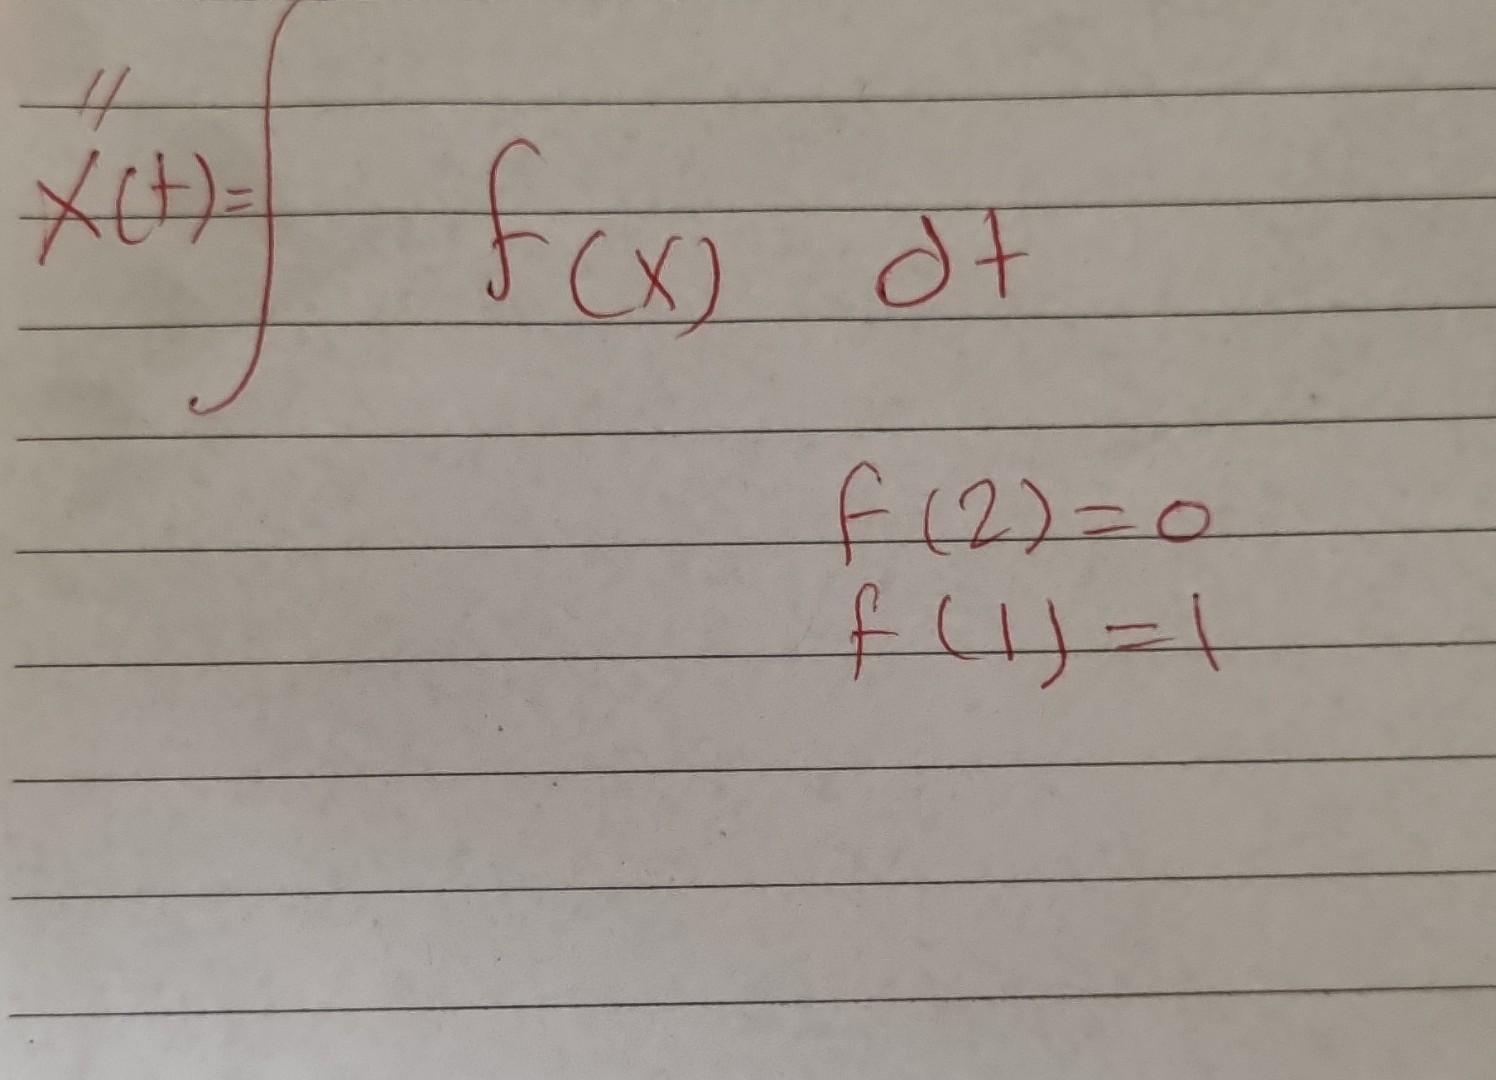 x''(t)=∫ f(x) dt
f(2)=0
f(1)=1